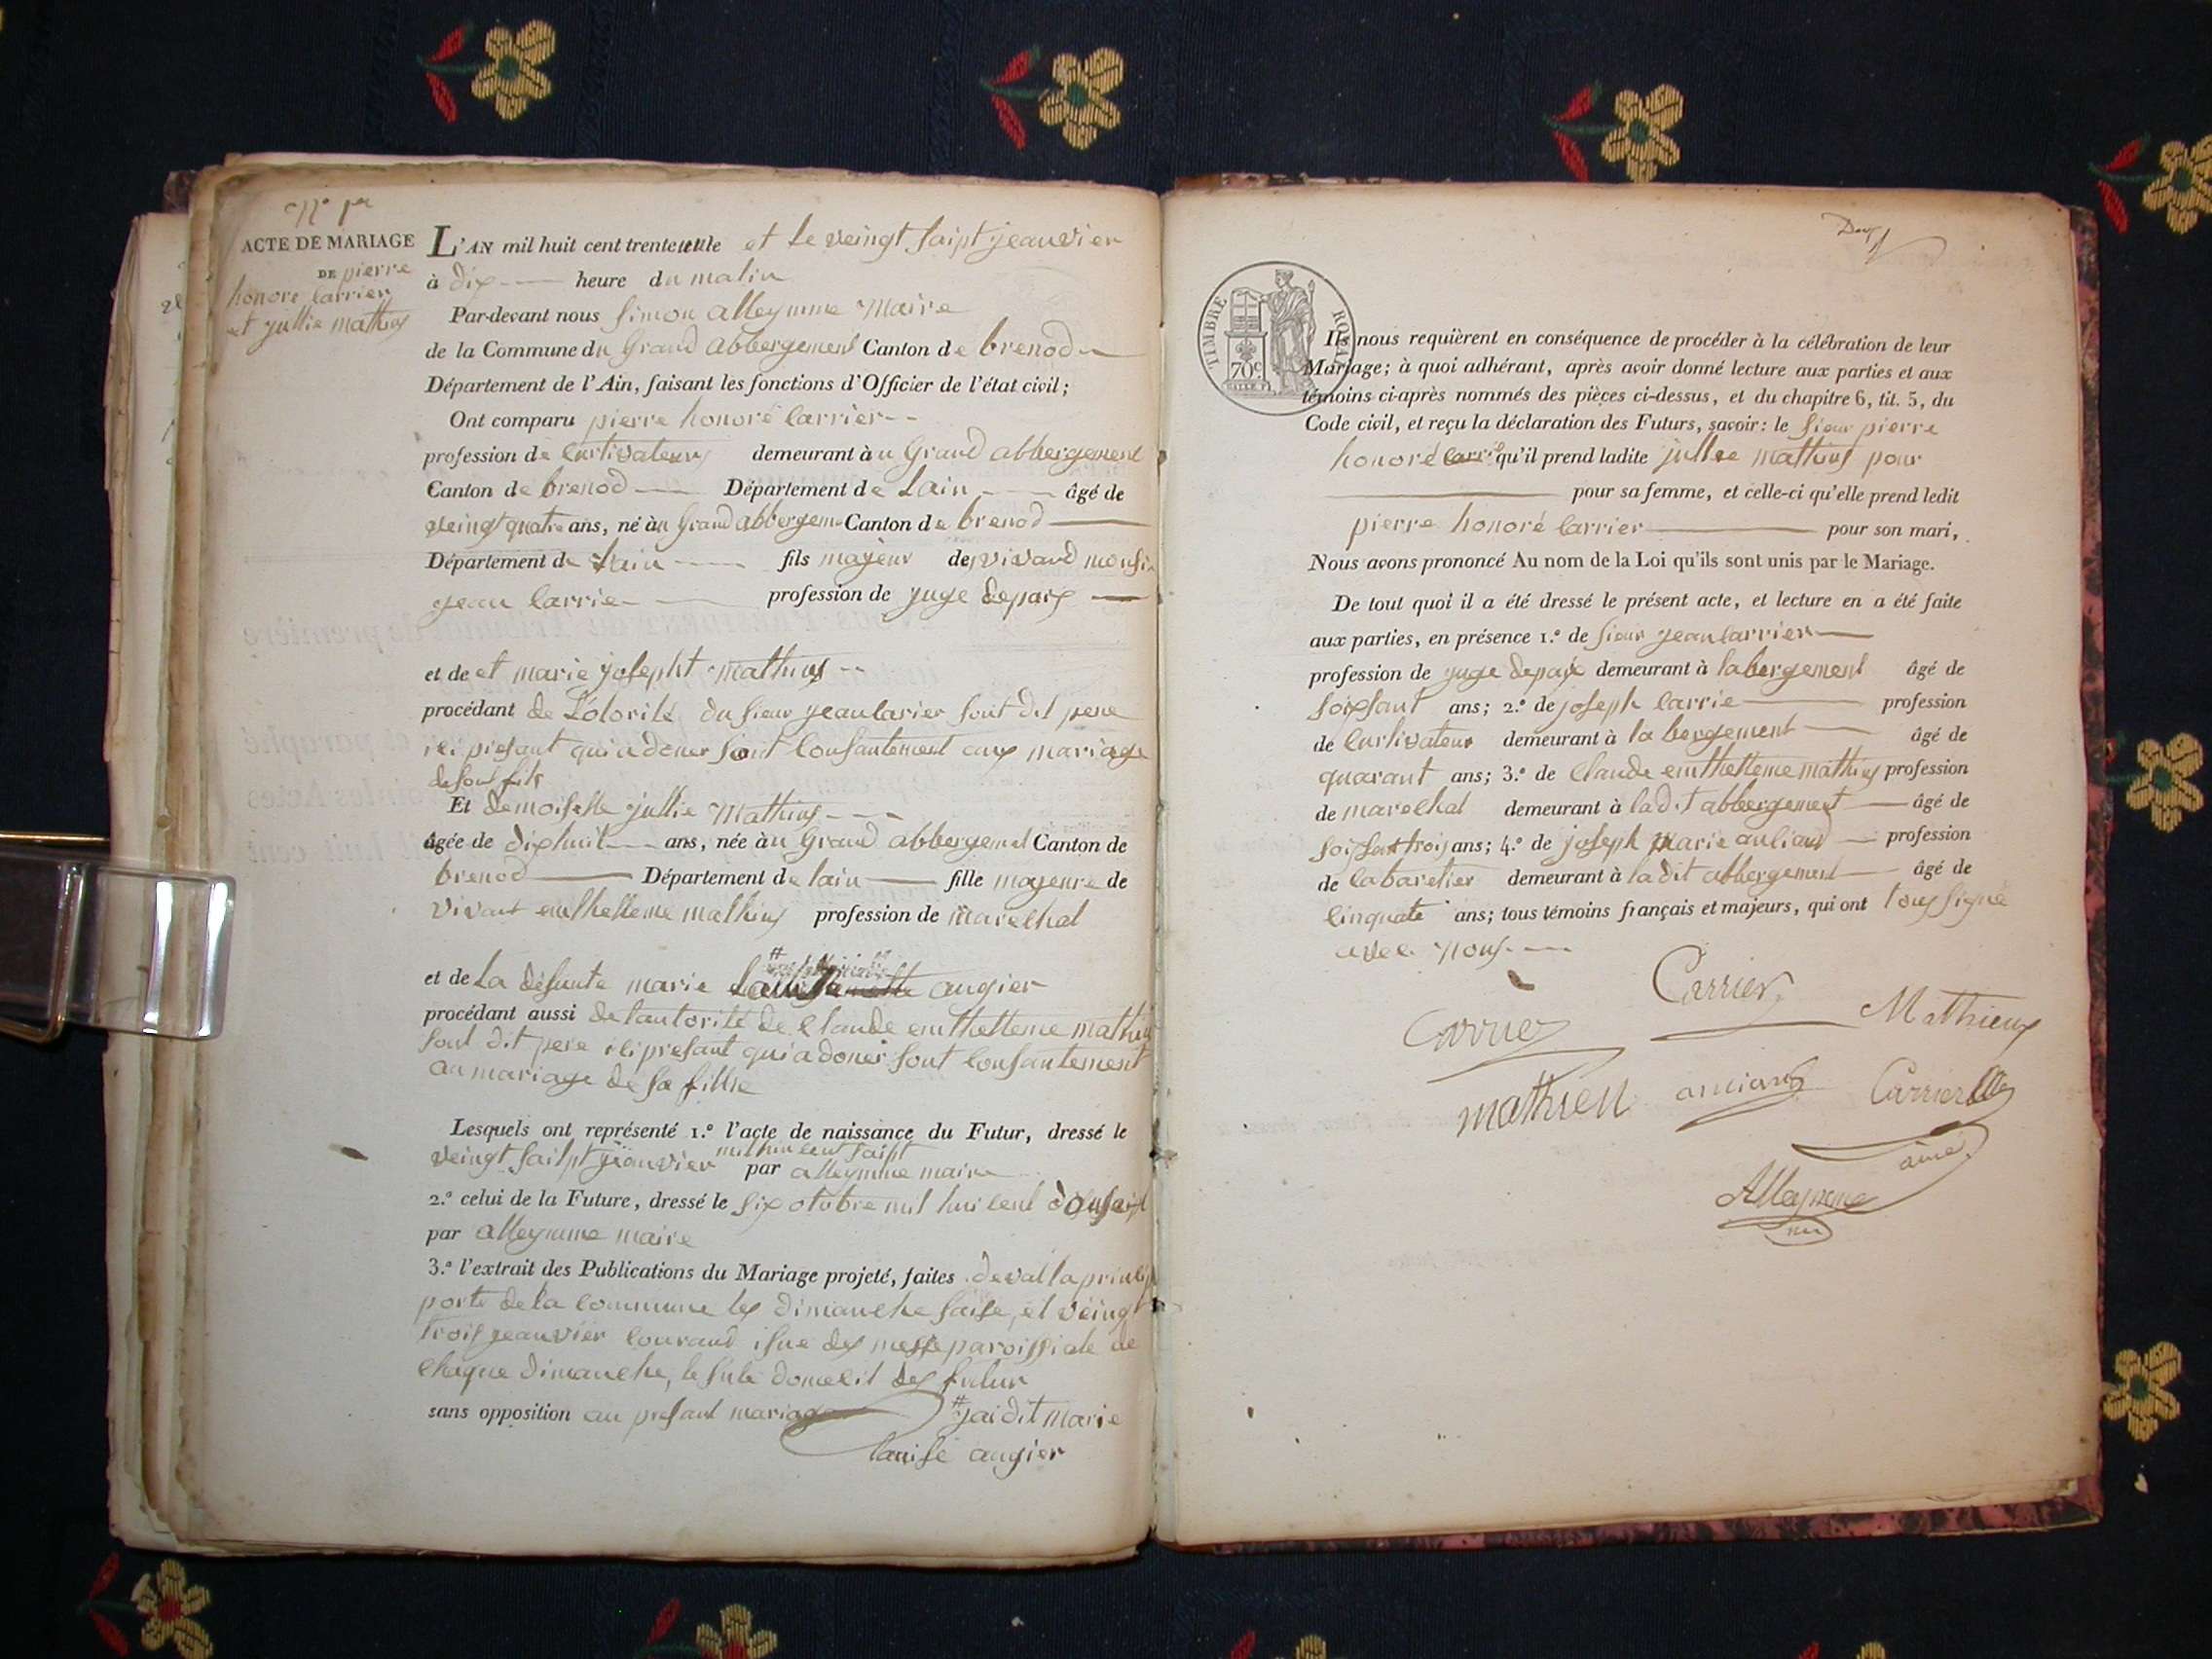 N° 1er
ACTE DE MARIAGE
DE pierre
honore Carrier
et jullie mathieu
L'AN mil huit cent trente et le veingt saipt jeanvier
à dix heure du matin
Par-devant nous Simon alleymme Maire
de la Commune du Grand abbergement Canton de brenod
Département de l'Ain, faisant les fonctions d'Officier de l'état civil;
Ont comparu pierre honoré Carrier
profession de Curtivateur demeurant à u Grand abbergement
Canton de brenod Département de Lain âgé de
veingt quatre ans, né à u Grand abbergem Canton de brenod
Département de Lain fils majeur de vivand
jean Carrie profession de juge depaix
et de et marie josepht mathieu
procédant de Lotorité du sieur jean Carier sont dit pere
ici presant qui a doner sont Consantement aux mariage
de sont fils
Et demoiselle jullie Mathieu
âgée de dixhuit ans, née à u Grand abbergement Canton de
brenod Département de lain fille mageure de
vivant emthelleme mathieu profession de marechal
et de La défunte marie augier
procédant aussi de lautorité de Claude emthelleme mathieu
sont dit pere ici presant qui a doner sont Consantement
au mariage de sa fillie
Lesquels ont représenté 1.° l'acte de naissance du Futur, dressé le
veingt saipt jeanvier mil hui cent saipt par alleymme maire
2.° celui de la Future, dressé le six otobre mil hui cent
par alleymme maire
3.° l'extrait des Publications du Mariage projeté, faites deval la
porte de la Commune les dimanche saise, et veingt
trois jeanvier Courand isue des messe paroissiale de
Chaque dimanche, domecil des futur
sans opposition au presant mariage # jai dit marie
Lauise augier
TIMBRE ROYAL
70c
Ils nous requièrent en conséquence de procéder à la célébration de leur
Mariage; à quoi adhérant, après avoir donné lecture aux parties et aux
témoins ci-après nommés des pièces ci-dessus, et du chapitre 6, tit. 5, du
Code civil, et reçu la déclaration des Futurs, savoir: le sieur pierre
honoré Carrie qu'il prend ladite jullie mathieu pour
pour sa femme, et celle-ci qu'elle prend ledit
pierre honoré Carrier pour son mari,
Nous avons prononcé Au nom de la Loi qu'ils sont unis par le Mariage.
De tout quoi il a été dressé le présent acte, et lecture en a été faite
aux parties, en présence 1.° de sieur jean Carrier
profession de juge depaix demeurant à labergement âgé de
soixsant ans; 2.° de joseph Carrie profession
de Curtivateur demeurant à la bergement âgé de
quarant ans; 3.° de Claude emthelleme mathieu profession
de marechal demeurant à ladit abbergement âgé de
soissant trois ans; 4.° de joseph marie auliard profession
de Cabaretier demeurant à la dit abbergement âgé de
Cinquate ans; tous témoins français et majeurs, qui ont tous signé
avec nous
Carrier
Carrier
Mathieu
mathieu
Carrier
ainé
Alleymme